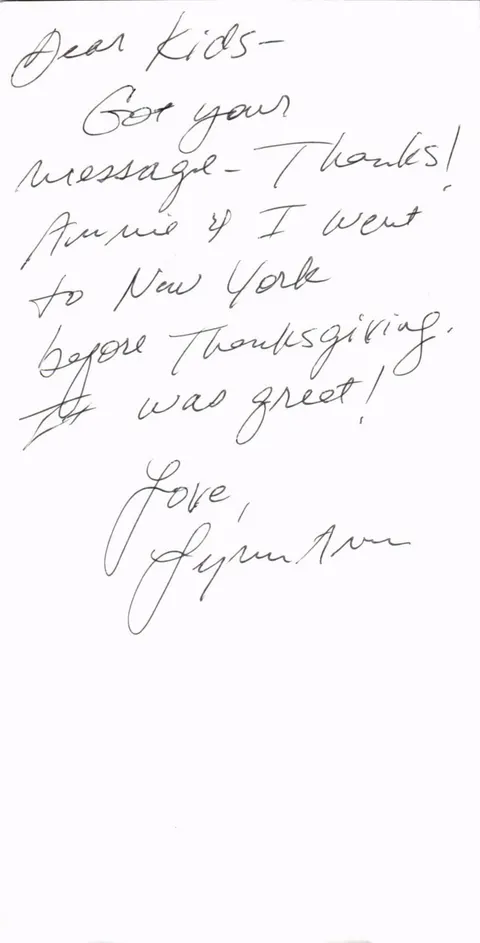 Dear Kids-
Got your
message - Thanks!
Annie & I went
to New York
before Thanksgiving.
It was great!
Love,
Lynn Ann